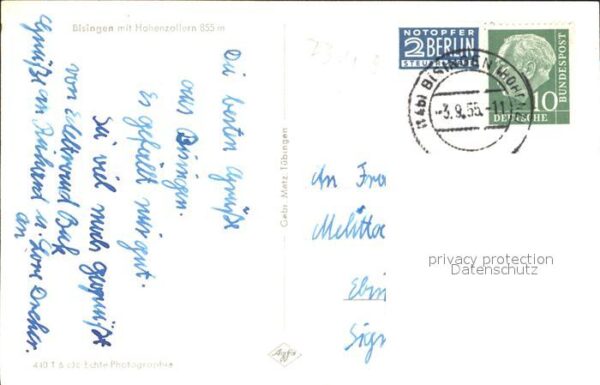 Bisingen mit Hohenzollern 855 m
Die besten Grüße
aus Bisingen.
Es gefällt mir gut.
Sei viel mals gegrüßt
von
Grüße an Richard u. Lore Dreher.
an
440 T 6 c/c Echte Photographie
Gebr. Metz Tübingen
Agfa
NOTOPFER
2 BERLIN
STEUERMARKE
10
DEUTSCHE
BUNDESPOST
(14b) BISINGEN (HOHENZ
-3.9.55.-11
An Fra
Melitta
Ebin
Sigm
privacy protection
Datenschutz